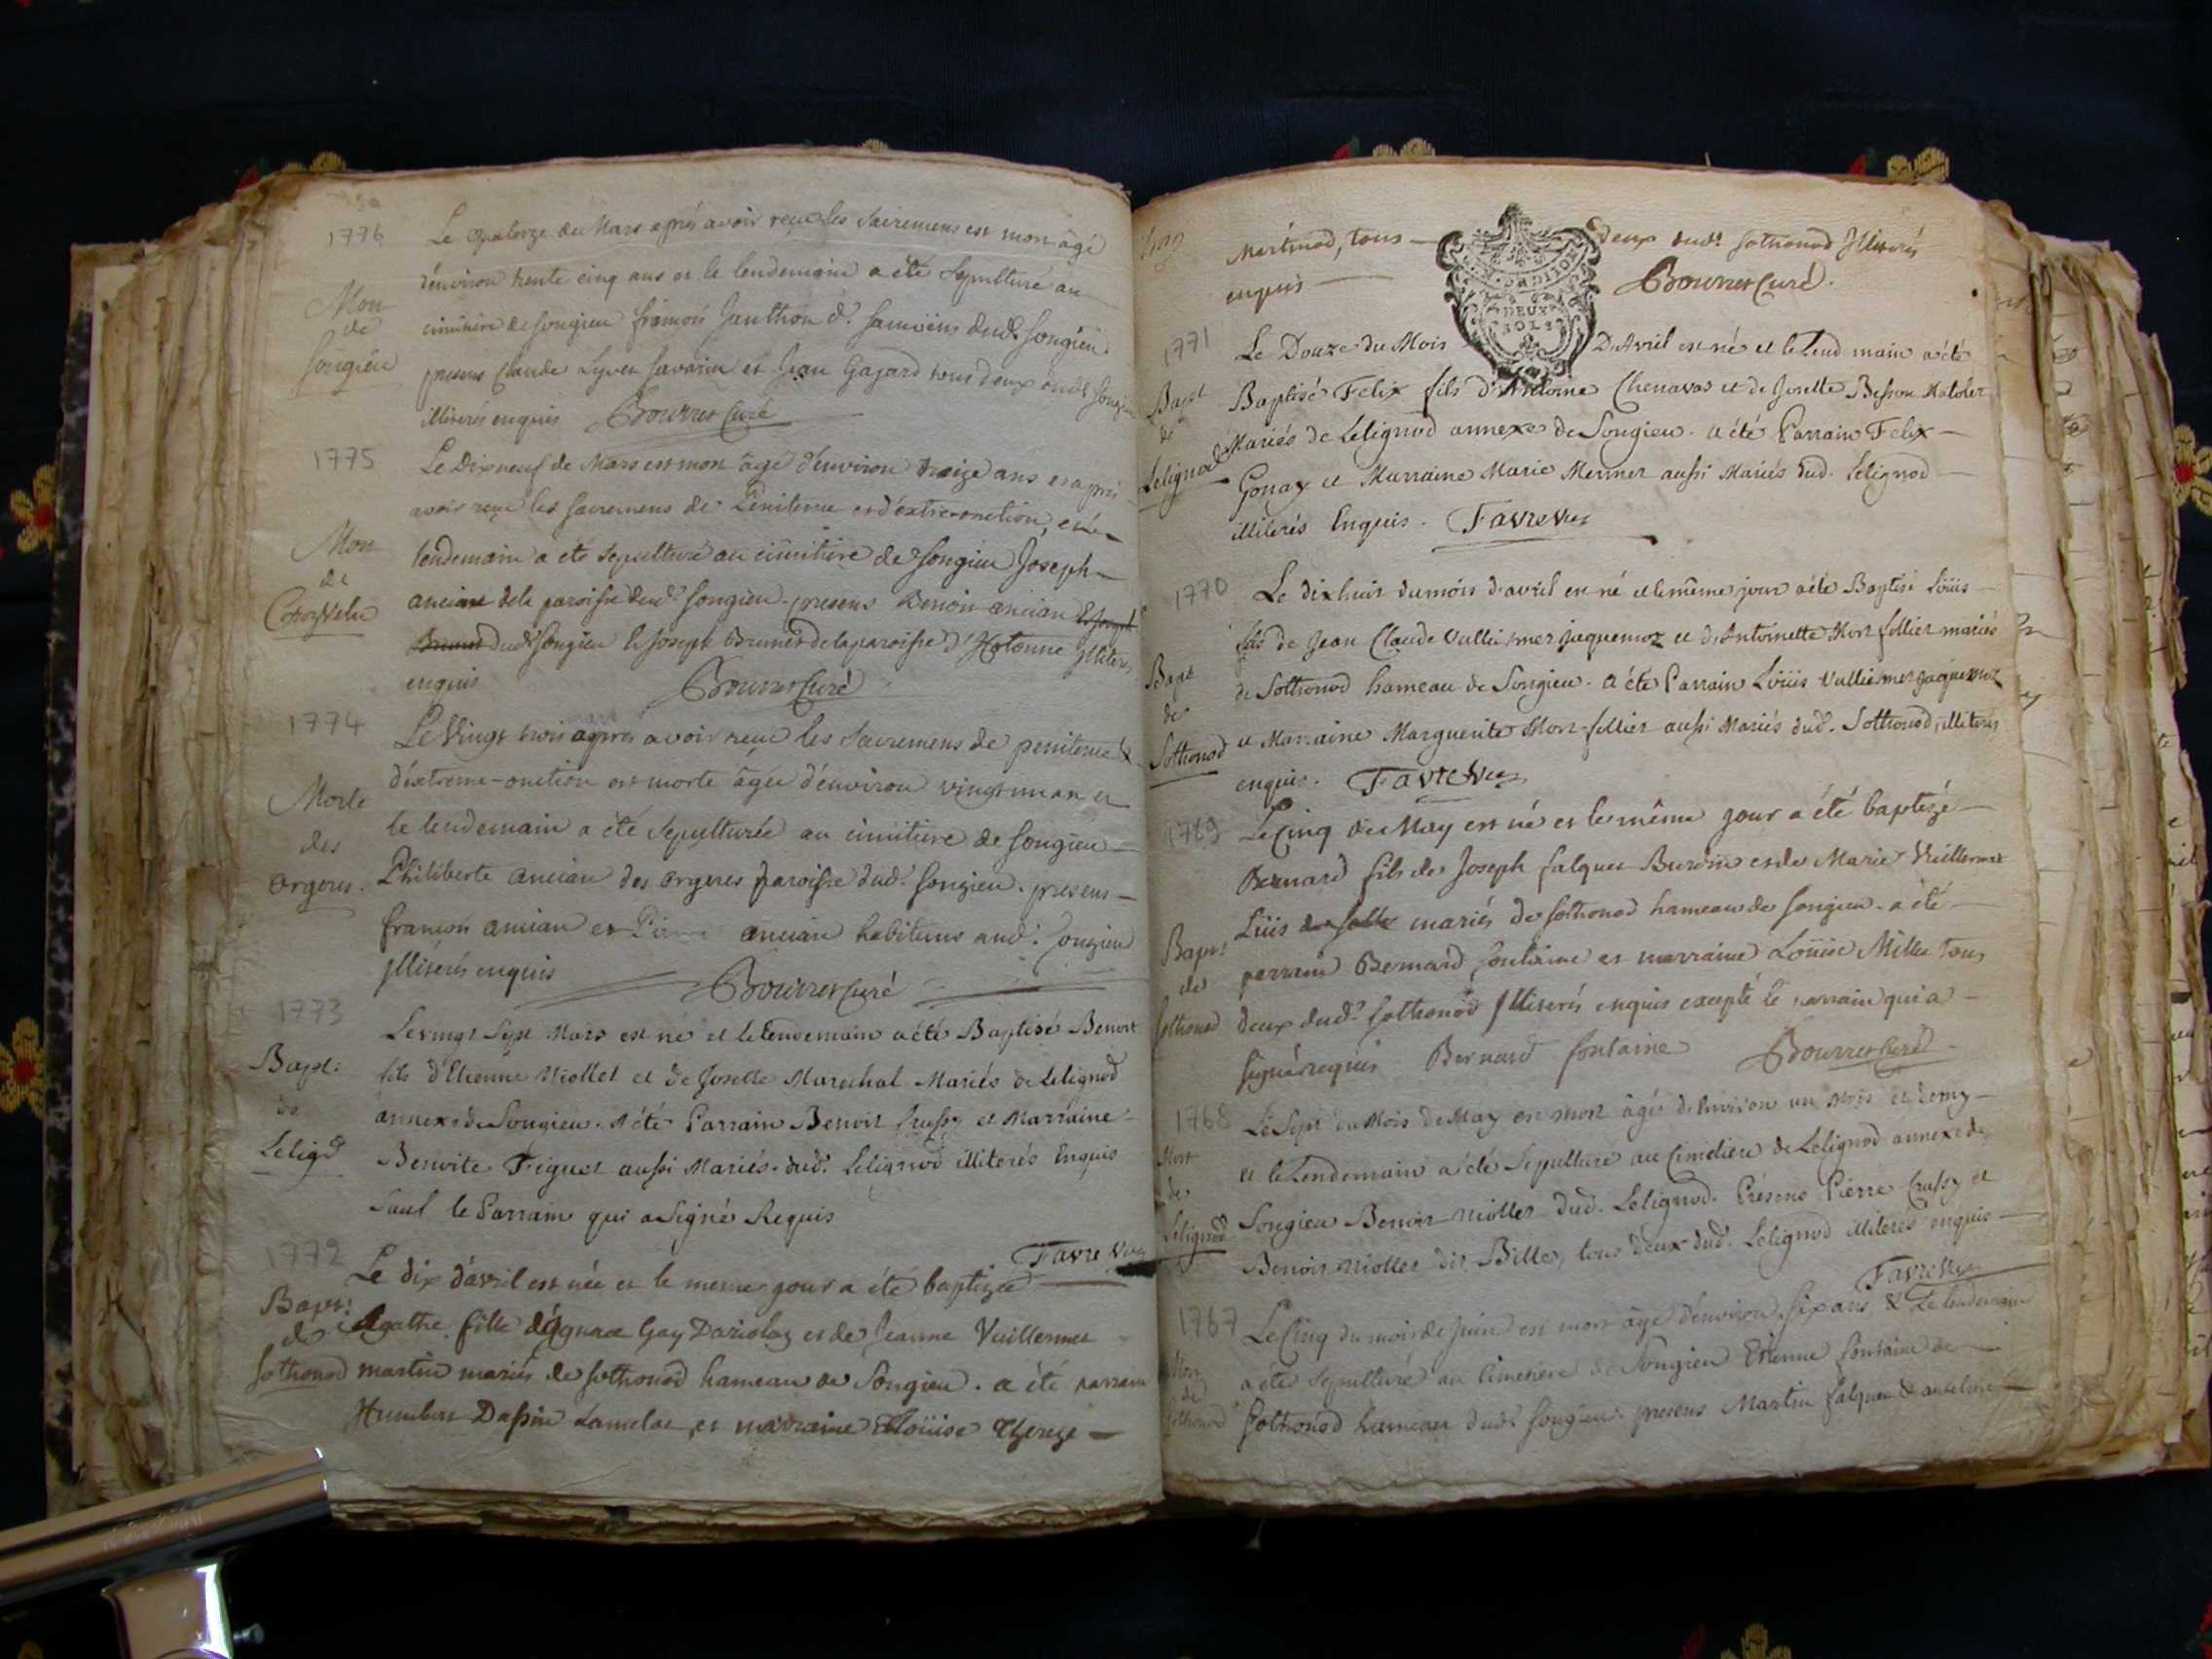 1776
Le quatorze du Mars après avoir reçu les Sacremens est mort âgé
d'environ trente cinq ans et le lendemain a été Sepulturé au
Mort
de
Songieu
cimitiere de Songieu françois Janthon d. Samoëns dud. Songieu.
presens Claude Lyvet Savarin et Jean Gajard tous deux dud. Songieu
illiterés enquis Bourret Curé
1775
Le Dixneuf de Mars est mort âgé d'environ treize ans et après
avoir reçu les sacremens de Penitence et d'extre-onction, et le
Mort
de
lendemain a été sepulturé au cimitiere de Songieu Joseph
ancian dela paroisse dud. Songieu. presens Benoit ancian
dud. Songieu & Joseph Brunet de la paroisse d'Hotonne illiterés
enquis Bourret Curé
1774
Le Vingt trois mars après avoir reçu les Sacremens de penitence &
d'extreme-onction est morte âgée d'environ vingt un an et
Morte
des
orgeres.
le lendemain a été Sepulturée au cimitiere de Songieu
Philiberte ancian des orgeres paroisse dud. Songieu. presens
françois ancian et ancian habitans aud. Songieu
illiterés enquis Bourret Curé
1773
Le vingt Sept Mars est né et le lendemain a été Baptisé Benoit
Bapt:
de
Lelig.d
fils d'Etienne Miollet et de Josette Marechal Mariés de Lelignod
annexe de Songieu. A été Parrain Benoit Crussy et Marraine
Benoite Figuet aussi Mariés dud. Lelignod illiterés Enquis
Sauf le Parrain qui a Signé Requis
Favre Vic
1772
Le dix d'avril est née et le meme jour a été baptizée
Bapt:
de
Sothonod
Agathe fille d'ignace Gay Dariolaz et de Jeanne Vuillermet
martin mariés de Sothonod hameau de Songieu. a été parrain
Humbert Dassin Lamelae et marraine Loüise Thereze
Martinod, tous deux dud. Sothonod Illiterés
enquis Bourret Curé.
DEUX
SOLS
1771
Le Douze du Mois D'Avril est né et le Lendemain a été
Bapt
de
Lelignod
Baptisé Felix fils d'Antoine Chenavas et de Josette Besson Matolet
Mariés de Lelignod annexe de Songieu. a été Parrain Felix
Gonay et Marraine Marie Mermet aussi Mariés dud. Lelignod
illiterés Enquis. Favre Vic
1770
Le dixhuit du mois d'avril est né et le même jour a été Baptisé Loüis
fils de Jean Claude Vulliermet Jaquemoz et d'Antoinette Mortfollier mariés
Bapt
de
Sothonod
de Sothonod hameau de Songieu. a été Parrain Loüis Vulliermet Jaquemoz
et Marraine Marguerite Mort-follier aussi Mariés dud. Sothonod, illiterés
enquis. Favre Vic
1769
Le Cinq de May est né et le même jour a été baptezé
Bernard fils de Joseph falquet Burdin et de Marie Vuillermet
Bapt:
de
Sothonod
Luis mariés de Sothonod hameau de Songieu. a été
parrain Bernard fontaine et marraine Loüise Millet tous
deux dud. Sothonod Illiterés enquis excepté le parrain qui a
signé requis Bernard fontaine Bourret Curé
1768
Le Sept du Mois de May est mort âgé d'Environ un Mois et demy
Mort
de
Lelignod
et le Lendemain a été Sepulturé au Cimetiere de Lelignod annexe de
Songieu Benoit Miollet dud. Lelignod. Présens Pierre Crussy et
Benoit Miollet dit Billet, tous deux dud. Lelignod illiterés enquis
Favre Vic
1767
Le Cinq du mois de Juin est mort âgé d'environ six ans & Le lendemain
Mort
de
Sothonod
a été Sepulturé au Cimetiere de Songieu Etienne fontaine de
Sothonod hameau dud. Songieu. presens Martin falquet & anthelme